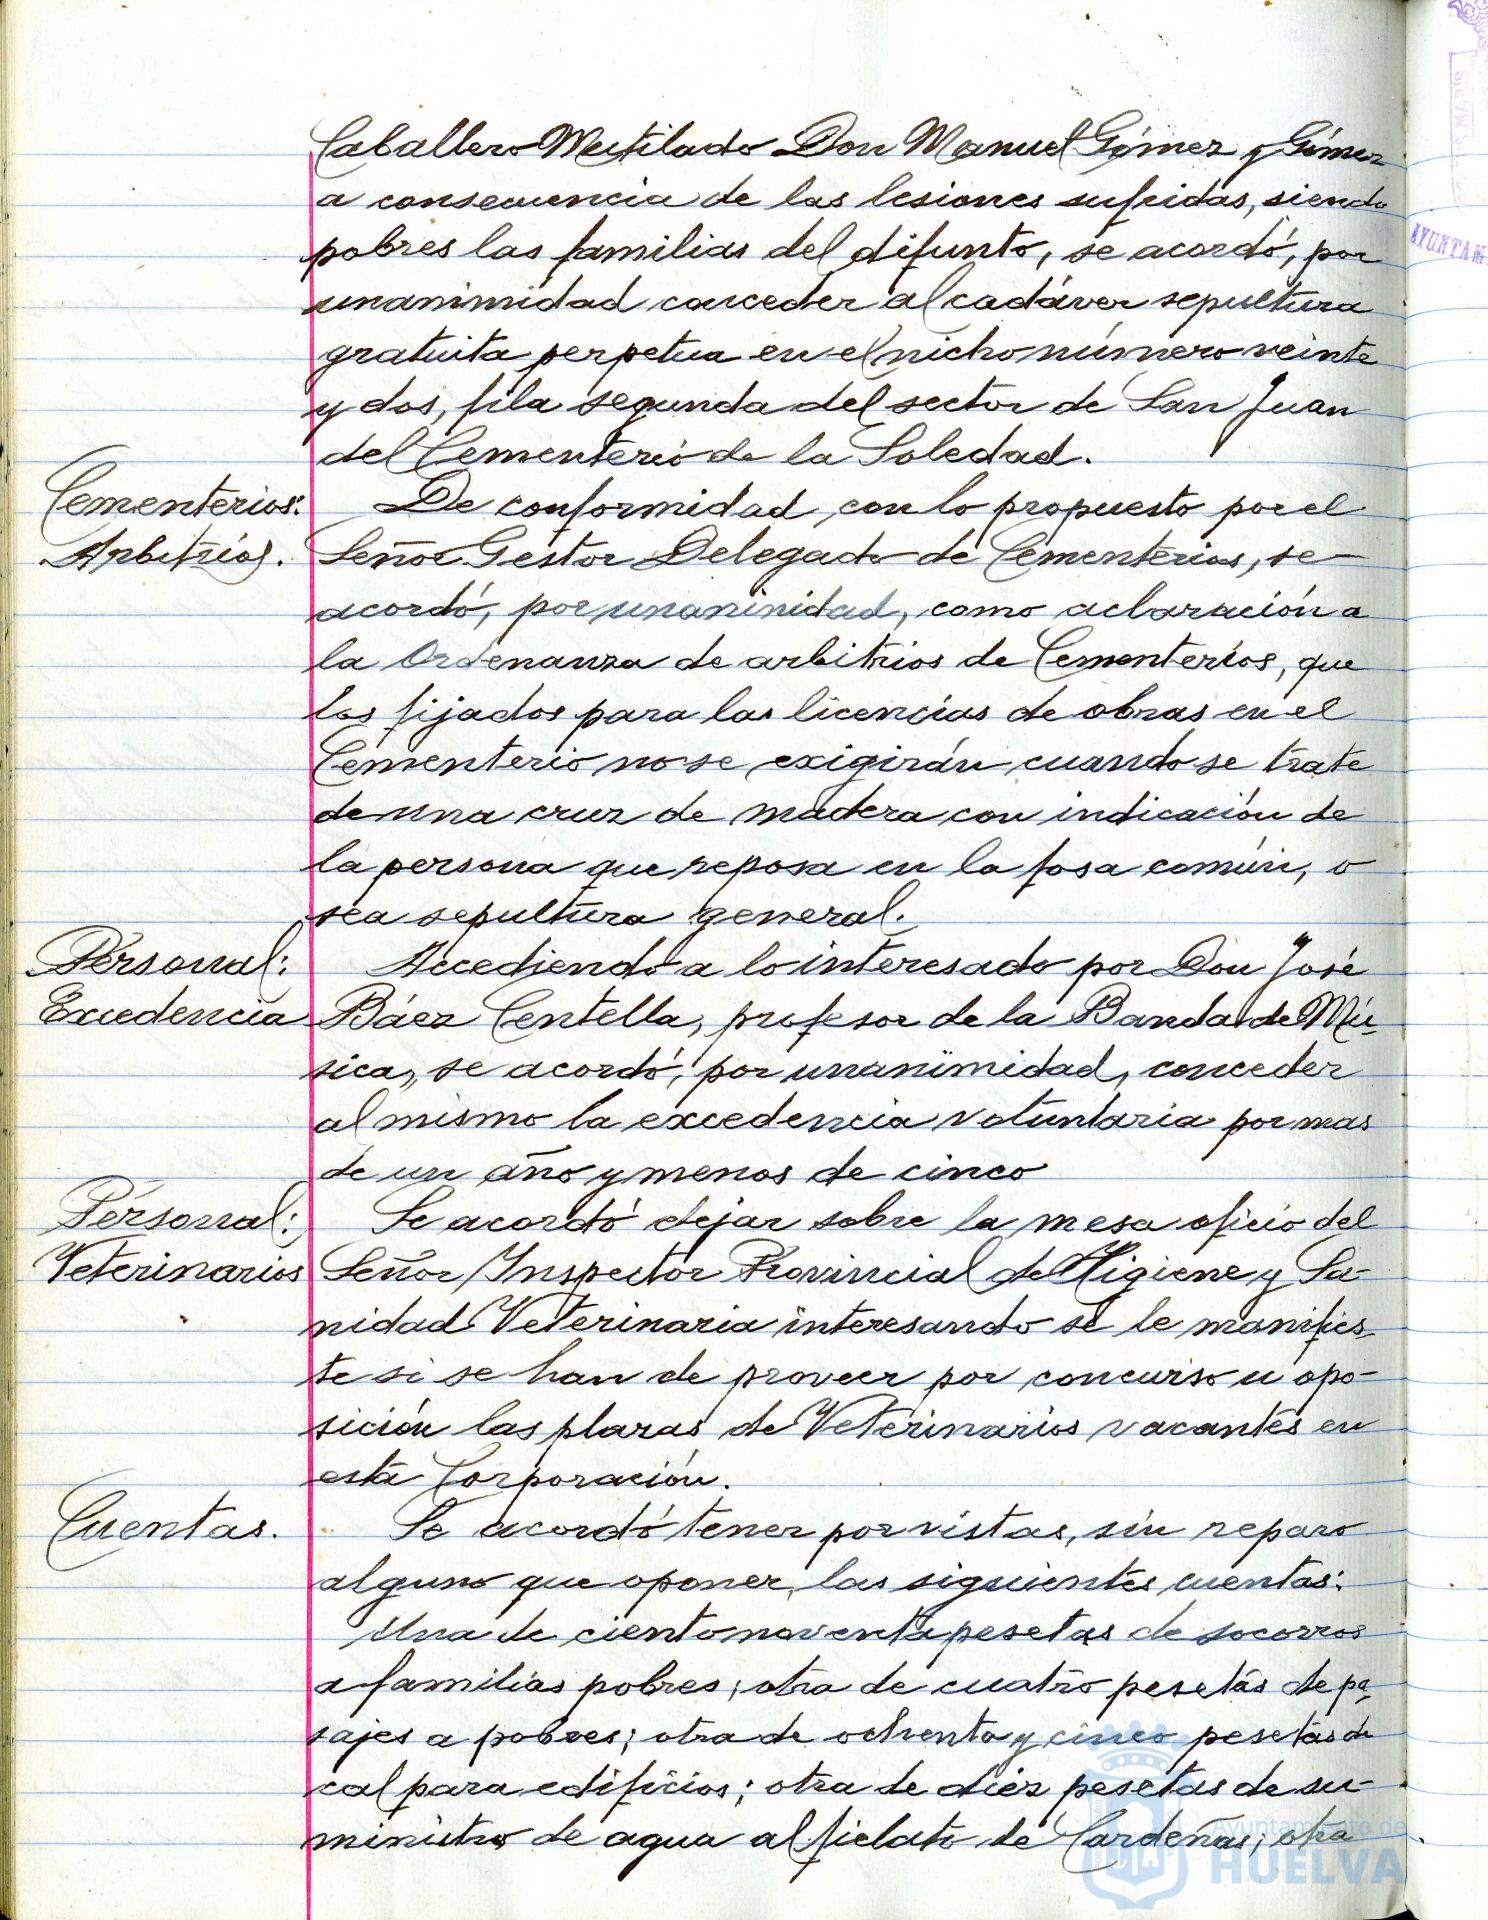 Caballero Mutilado Don Manuel Gómez y Gómez
a consecuencia de las lesiones sufridas, siendo
pobres las familias del difunto, se acordó, por
unanimidad conceder al cadáver sepultura
gratuita perpetua en el nicho número veinte
y dos, fila segunda del sector de San Juan
del Cementerio de la Soledad.
Cementerios:
Arbitrios.
De conformidad con lo propuesto por el
Señor Gestor Delegado de Cementerios, se
acordó, por unaninidad, como aclaración a
la Ordenanza de arbitrios de Cementerios, que
los fijados para las licencias de obras en el
Cementerio no se exigirán cuando se trate
de una cruz de madera con indicación de
la persona que reposa en la fosa común, o
sea sepultura general.
Personal:
Excedencia
Accediendo a lo interesado por Don José
Báez Centella, profesor de la Banda de Mú-
sica, se acordó, por unanimidad, conceder
al mismo la excedencia voluntaria por mas
de un año y menos de cinco
Personal:
Veterinarios
Se acordó dejar sobre la mesa oficio del
Señor Inspector Provincial de Higiene y Sa-
nidad Veterinaria interesando se le manifies-
te si se han de proveer por concurso u opo-
sición las plazas de Veterinarios vacantes en
esta Corporación.
Cuentas.
Se acordó tener por vistas, sin reparo
alguno que oponer, las siguientes cuentas:
Una de ciento noventa pesetas de socorros
a familias pobres; otra de cuatro pesetas de pa-
sajes a pobres; otra de ochenta y cinco pesetas de
cal para edificios; otra de diez pesetas de su-
ministro de agua al fielato de Cardeñas; otra
AYUNTAM
Ayuntamiento de
HUELVA